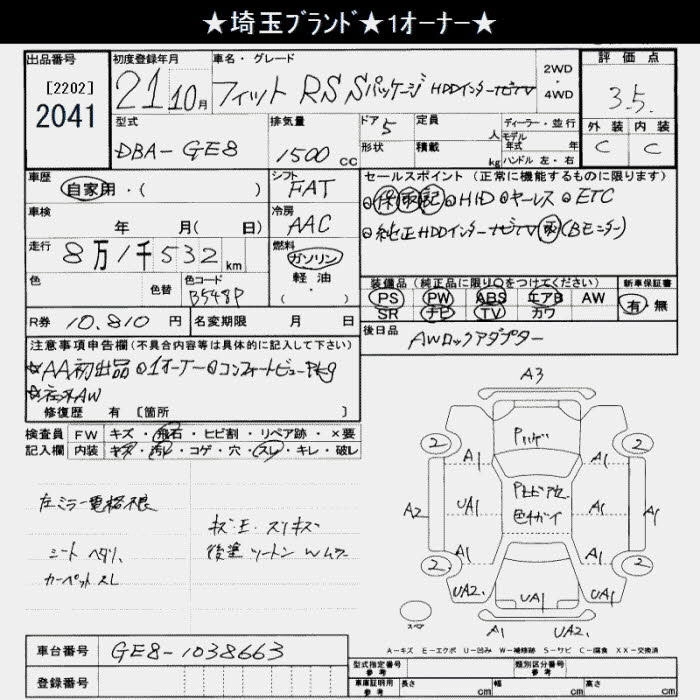 ★埼玉ブランド★1オーナー★
出品番号 初度登録年月 車名・グレード 2WD・4WD 評価点
[2202]
2041
21 10月 フィット RS Sパッケージ HDDインターナビTV 3.5
型式 排気量 ドア 5 定員 人 ディーラー・並行
モデル年式 年 外装 内装
DBA-GE8 1500cc 形状 積載 kg ハンドル 左・右 C C
車歴 シフト セールスポイント(正常に機能するものに限ります)
自家用・( ) FAT 保 取 記 HID キーレス ETC
車検 冷房
年 月( 日) AAC 純正HDDインターナビTV 取 (Bモニター)
走行 燃料
8万1千532km ガソリン
軽油
( ・ )
色 色替 色コード 装備品(純正品に限り○をつけてください) 新車保証書
B548P PS PW ABS エアB AW 有・無
SR ナビ TV カワ
R券 10,810円 名変期限 月 日 後日品
AWロックアダプター
注意事項申告欄(不具合内容等は具体的に記入して下さい)
☆AA初出品 1オーナー コンフォートビューPkg
☆社外AW
修復歴 有 [箇所 ]
検査員 FW キズ・飛石・ヒビ割・リペア跡・×要
記入欄 内装 キズ・汚レ・コゲ・穴・スレ・キレ・破レ
左ミラー電格不良
シート ヘタリ、
カーペット スレ
キズ・エ・スリキズ
後塗 ツートン Wムラ
A3
2 2
A1 A1
A2 UA1 A1 A1
色チガイ
A1 A1
2 2
UA2. UA1 UA1
スペア A1 UA2.
A-キズ E-エクボ U-凹み W-補修跡 S-サビ C-腐食 XX-交換済
車台番号 GE8-1038663
型式指定番号 参考 類別区分番号 参考
登録番号 車庫証明用 参考 長さ cm 幅 cm 高さ cm